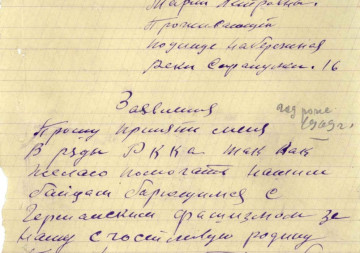 Марии Петровны.
Проживающей
по улице Набережная
реки Сарапулки. 16
Заявления
год рожд.
1909 г.
Прошу принять меня
в ряды РККА так как
желаю помогать нашим
бойцам борющимся с
Германским фашизмом за
нашу счастливую родину